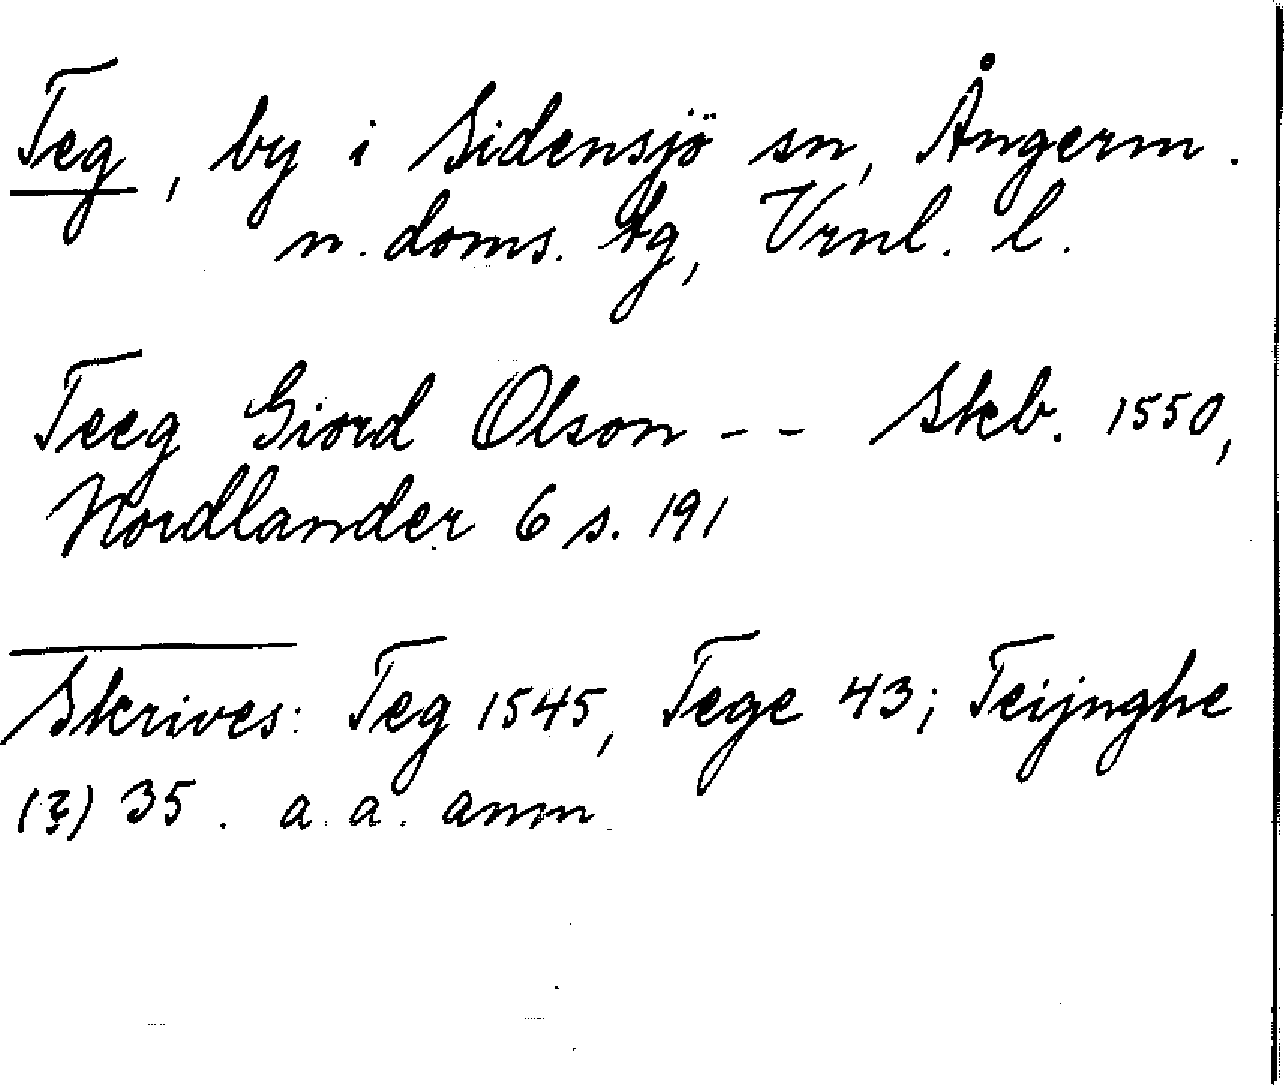 Teg, by i Sidensjö sn, Ångerm.
n. doms. tg, Vrnl. l.
Teeg Giord Olson -- Skb. 1550,
Nordlander 6 s. 191
Skrives: Teg 1545, Tege 43; Teijnghe
(?) 35. a. a. anm.